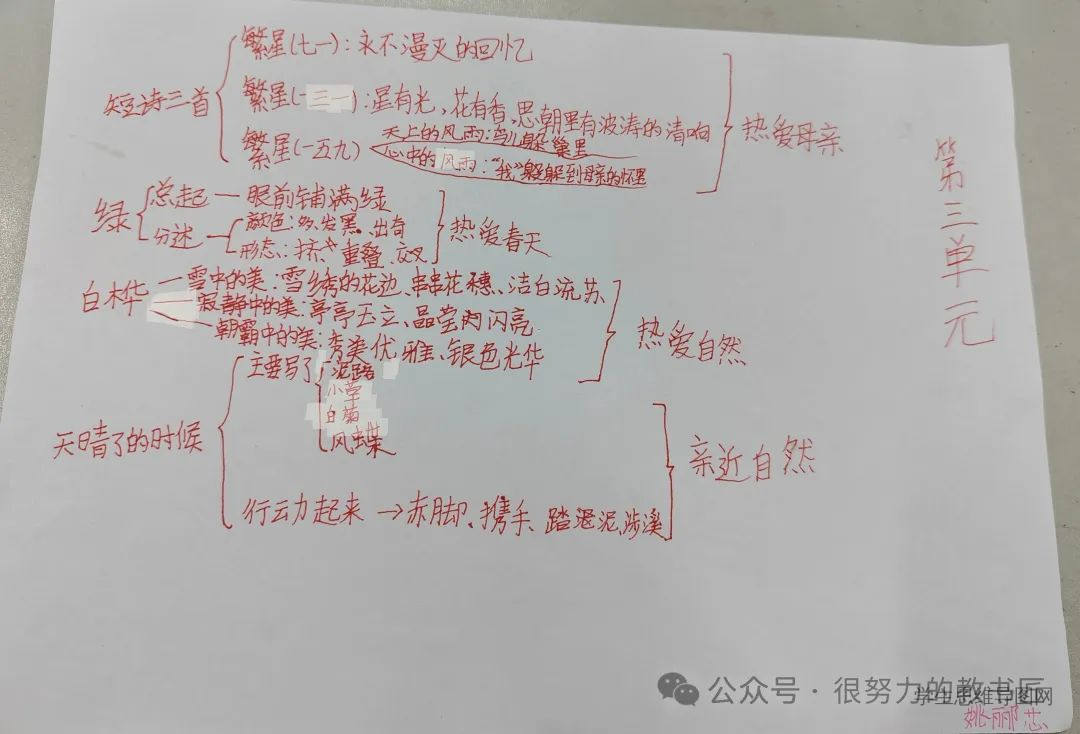 第三单元
短诗三首
繁星(七一):永不漫灭的回忆
繁星(一三一):星有光,花有香,思朝里有波涛的清响
繁星(一五九)
天上的风雨:鸟儿躲巢里
心中的风雨:“我”躲躲到母亲的怀里
热爱母亲
绿
总起—眼前铺满绿
分述
颜色:多、发黑、出奇
形态:挤、重叠、交叉
热爱春天
白桦
雪中的美:雪绣的花边、串串花穗、洁白流苏
寂静中的美:亭亭玉立、晶莹闪亮
朝霸中的美:秀美优雅、银色光华
热爱自然
天晴了的时候
主要写了
泥路
小草
白菊
凤蝶
行动力起来→赤脚、携手、踏湿泥、涉溪
亲近自然
公众号·很努力的教书匠
学生思维导图网